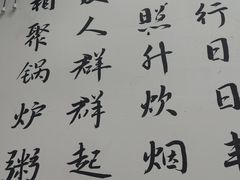 行日日
照升炊烟
人群群起
聚锅炉粥